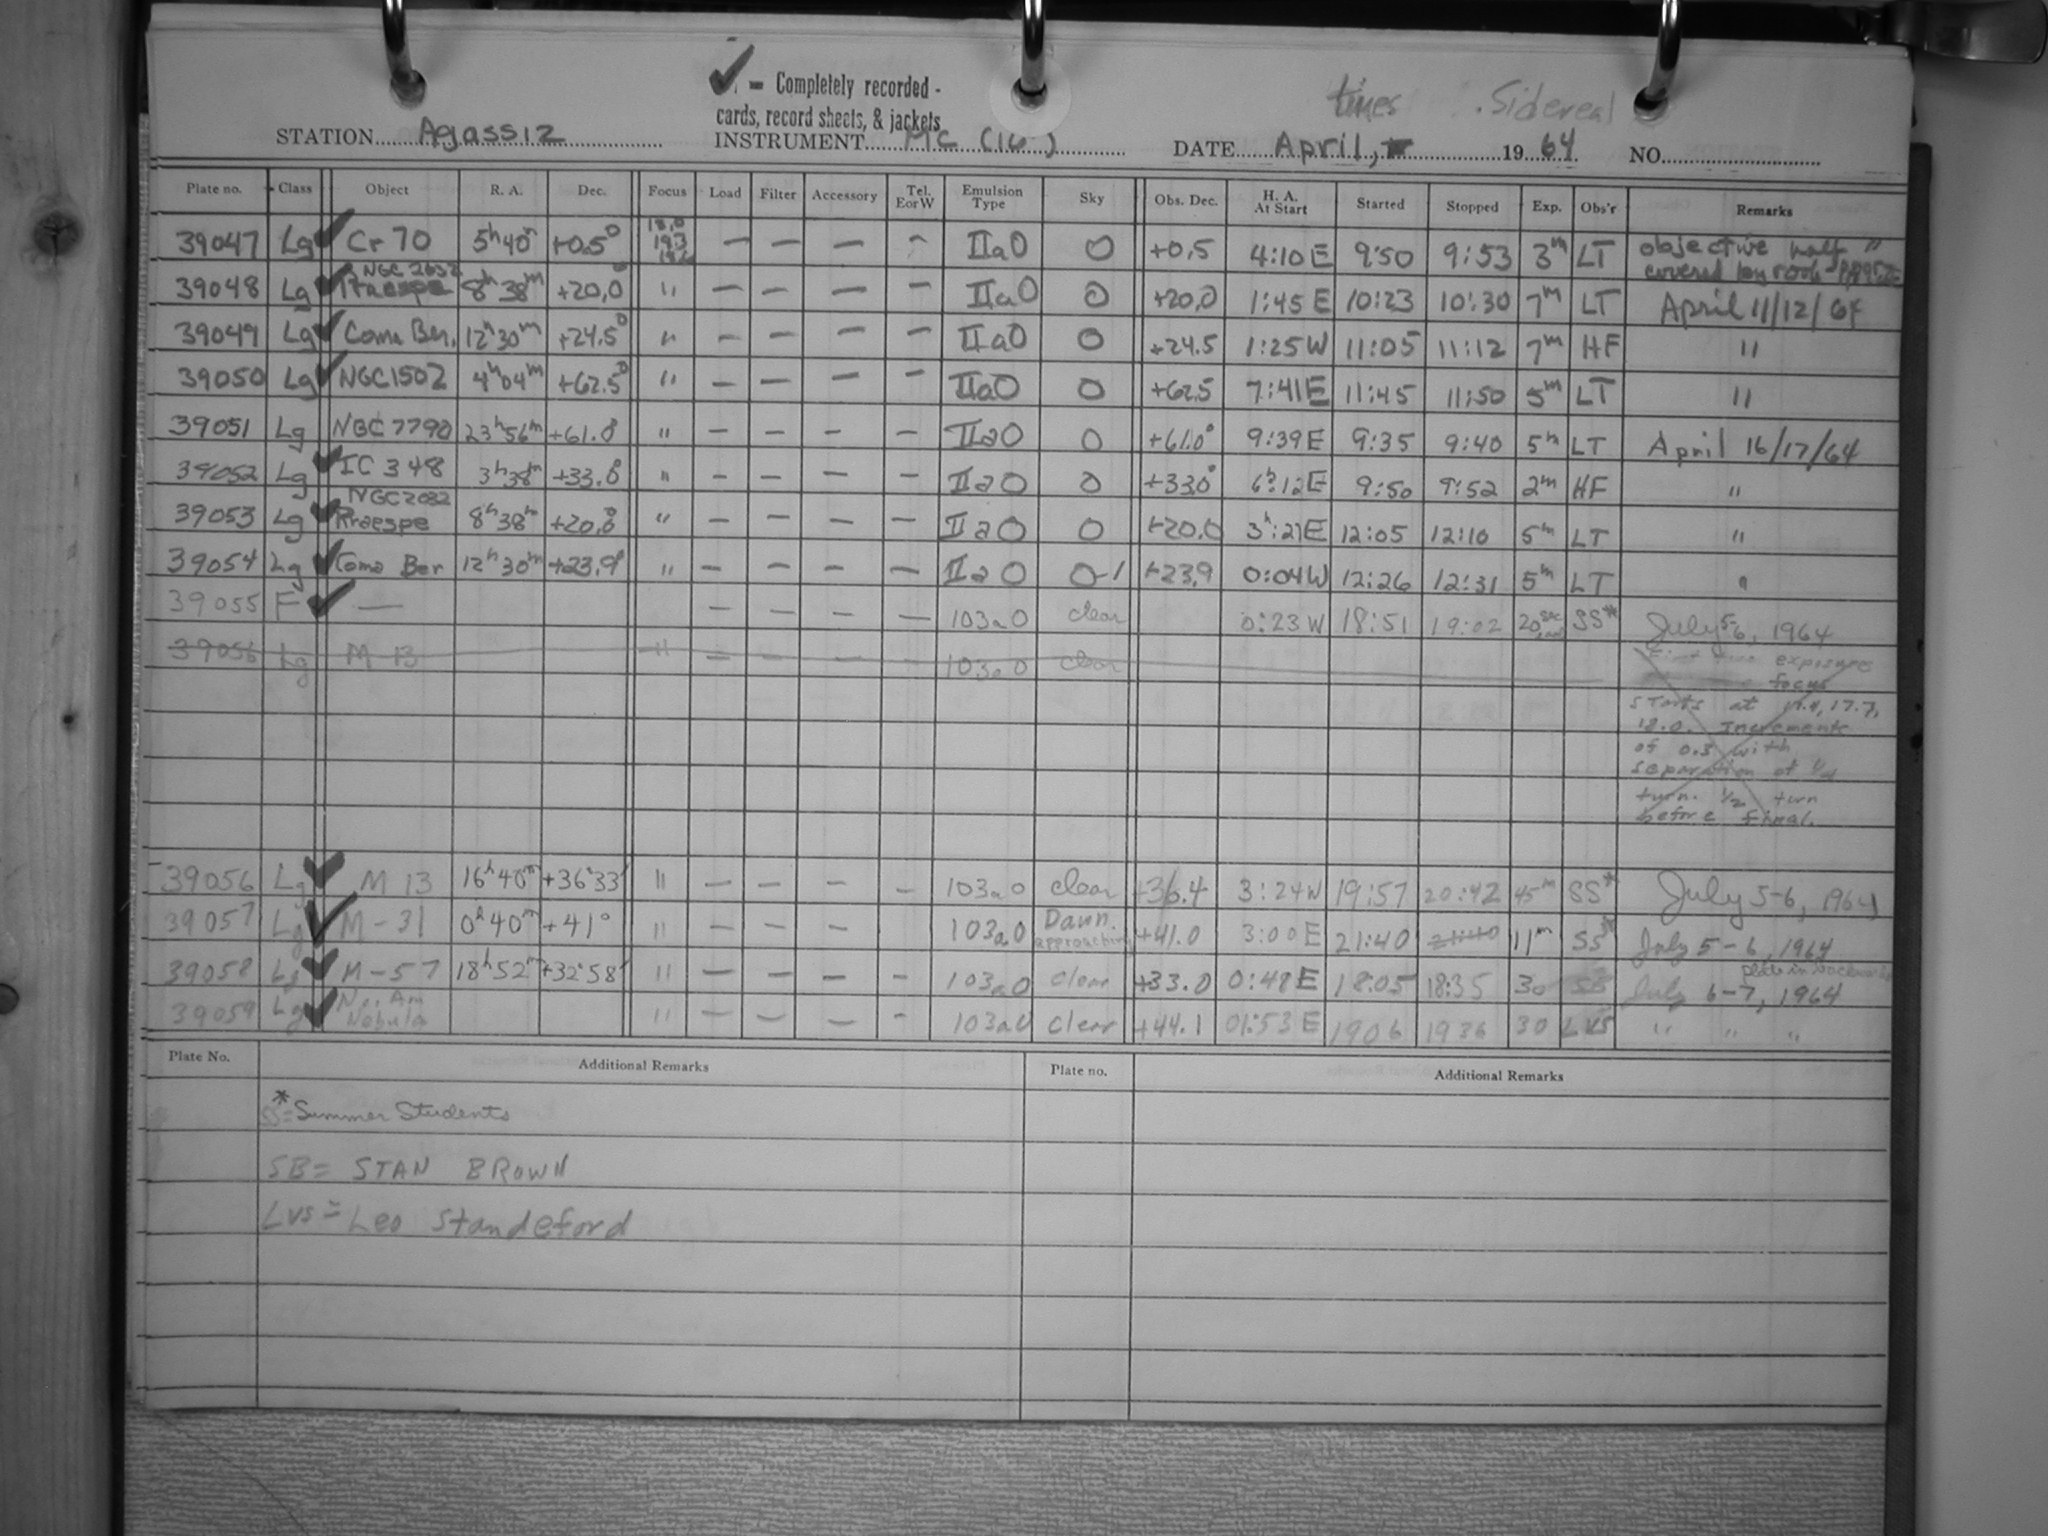 times Sidereal
✓ = Completely recorded - cards, record sheets, & jackets
STATION Agassiz INSTRUMENT MC DATE April, 19 64 NO.
Plate no. Class Object R. A. Dec. Focus Load Filter Accessory Tel. E or W Emulsion Type Sky Obs. Dec. H. A. At Start Started Stopped Exp. Obs'r Remarks
39047 Lg ✓ Cr 70 5h 40m +0.5° 18.0 — — — — IIaO 0 +0.5 4:10 E 9:50 9:53 3m LT objective half covered by roof
39048 Lg ✓ NGC 2632 Praespe 8h 38m +20.0° " — — — — IIaO 0 +20.0 1:45 E 10:23 10:30 7m LT April 11/12/64
39049 Lg ✓ Coma Ber. 12h 30m +24.5° " — — — — IIaO 0 +24.5 1:25 W 11:05 11:12 7m HF "
39050 Lg ✓ NGC 1502 4h 04m +62.5° " — — — — IIaO 0 +62.5 7:41 E 11:45 11:50 5m LT "
39051 Lg NGC 7790 23h 56m +61.0° " — — — — IIaO 0 +61.0° 9:39 E 9:35 9:40 5m LT April 16/17/64
39052 Lg ✓ IC 348 3h 38m +33.0° " — — — — IIaO 0 +33.0° 6h:12 E 9:50 9:52 2m HF "
39053 Lg ✓ NGC 2632 Praespe 8h 38m +20.0° " — — — — IIaO 0 +20.0 3h:21 E 12:05 12:10 5m LT "
39054 Lg ✓ Coma Ber 12h 30m +23.9° " — — — — IIaO 0-1 +23.9 0:04 W 12:26 12:31 5m LT "
39055 F ✓ — — — — — 103aO clear 0:23 W 18:51 19:02 20 sec SS* July 5-6, 1964
39056 Lg M 13 " — — — — 103aO clear exposure focus
starts at 17.4, 17.7,
18.0. Increments
of 0.3 with
separation of 1/4
turn. 1/2 turn
before final.
39056 Lg ✓ M 13 16h 40m +36°33' " — — — — 103aO clear +36.4 3:24 W 19:57 20:42 45m SS* July 5-6, 1964
39057 Lg ✓ M-31 0h 40m +41° " — — — — 103aO Dawn approaching +41.0 3:00 E 21:40 11m SS* July 5-6, 1964
39058 Lg ✓ M-57 18h 52m +32°58' " — — — — 103aO clear +33.0 0:48 E 18:05 18:35 30 SB plate in backwards July 6-7, 1964
39059 Lg ✓ No. Am Nebula " — — — — 103aO clear +44.1 01:53 E 1906 1936 30 LVS " " "
Plate No. Additional Remarks Plate no. Additional Remarks
* SS = Summer Students
SB = STAN BROWN
LVS = Leo Standeford